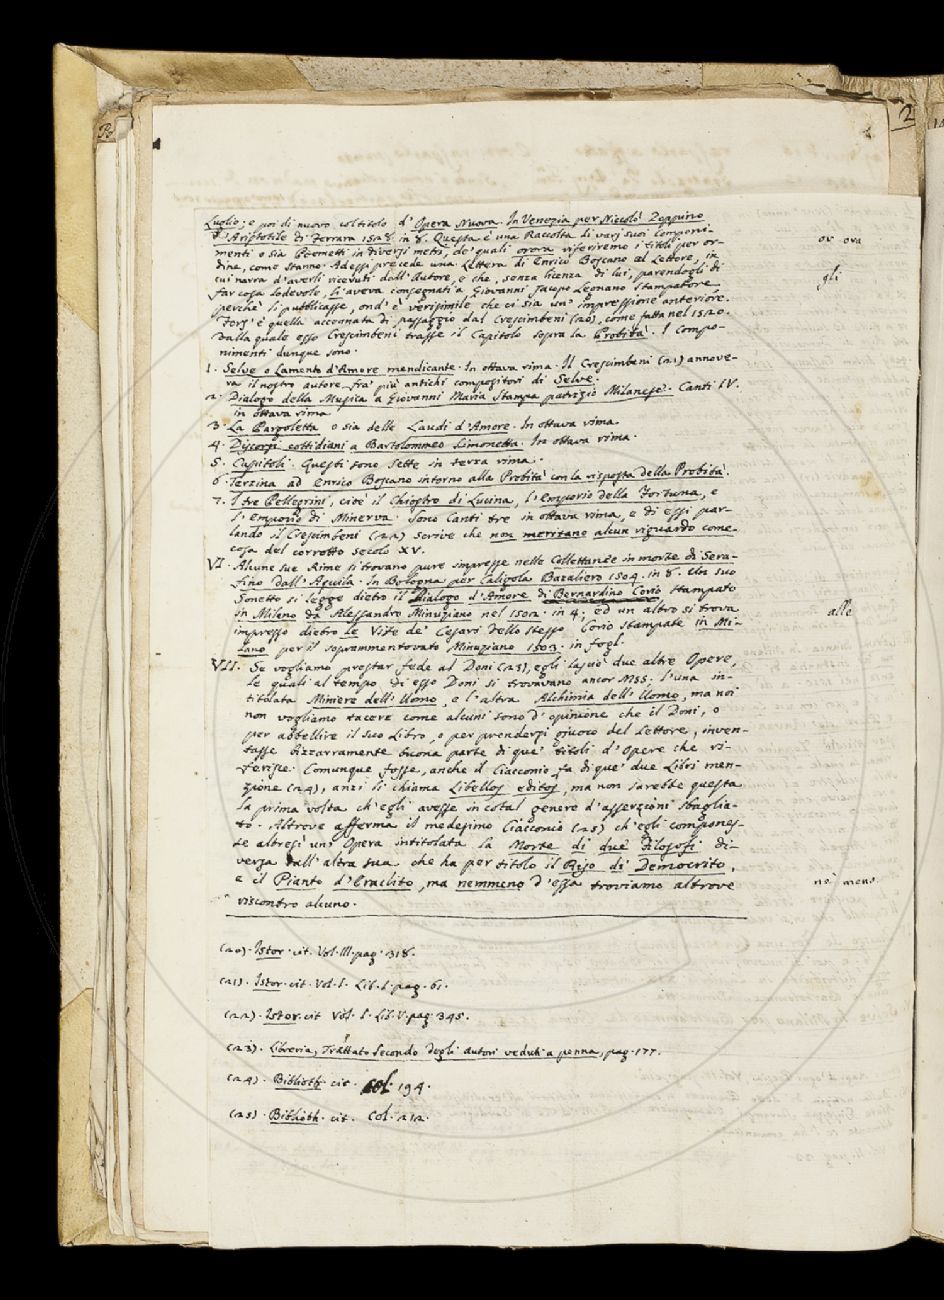 2
Luglio; e poi di nuovo col titolo d' Opera Nuova. In Venezia per Niccolò Zoppino
d' Aristotile di Ferrara 1528. in 8. Questa è una Raccolta di varj suoi Componi-
menti o sia Poemetti in diversi metri, de' quali orora riferiremo i titoli per or-
dine, come stanno. Ad essi precede una Lettera di Enrico Boscano al Lettore, in
cui narra d'averli ricevuti dall' Autore, e che, senza licenza di lui, parendogli di
far cosa lodevole, li aveva consegnati a Giovanni Jacopo Legnano Stampatore
perchè li pubblicasse, ond' è verisimile che ci sia un' impressione anteriore.
Fors' è quella accennata di passaggio dal Crescimbeni (20), come fatta nel 1520.
dalla quale esso Crescimbeni trasse il Capitolo sopra la Probità. I Compo-
nimenti dunque sono.
1. Selve o Lamento d'Amore mendicante. In ottava rima. Il Crescimbeni (21) annove-
ra il nostro autore fra' più antichi compositori di Selve.
2. Dialogo della Musica a Giovanni Maria Stampa patrizio Milanese. Canti IV.
in ottava rima
3. La Pargoletta o sia delle Laudi d'Amore. In ottava rima
4. Discorsi cottidiani a Bartolommeo Simonetta. In ottava rima.
5. Capitoli. Questi sono sette in terza rima.
6. Terzina ad Enrico Boscano intorno alla Probità con la risposta della Probità.
7. I tre Pellegrini, cioè il Chiostro di Lucina, l'Emporio della Fortuna, e
l' Emporio di Minerva. Sono Canti tre in ottava rima, e di essi par-
lando il Crescimbeni (22) scrive che non meritano alcun riguardo come
cosa del corrotto secolo XV.
VI. Alcune sue Rime si trovano pure impresse nelle Collettanee in morte di Sera-
fino dall' Aquila. In Bologna per Caligola Bazaliero 1504. in 8. Un suo
Sonetto si legge dietro il Dialogo d'Amore di Bernardino Corio stampato
in Milano da Alessandro Minuziano nel 1502. in 4; ed un altro si trova
impresso dietro le Vite de' Cesari dello stesso Corio stampate in Mi-
lano per il soprammentovato Minuziano 1503. in fogl.
VII. Se vogliamo prestar fede al Doni (23), egli lasciò due altre Opere,
le quali al tempo di esso Doni si trovavano ancor MSS. l'una in-
titolata Miniere dell' Uomo, e l'altra Alchimia dell' Uomo, ma noi
non vogliamo tacere come alcuni sono d'opinione che il Doni, o
per abbellire il suo Libro, o per prendersi giuoco del Lettore, inven-
tasse bizzarramente buona parte di que' titoli d'Opere che ri-
ferisce. Comunque fosse, anche il Ciacconio fa di que' due Libri men-
zione (24), anzi li chiama Libellos editos, ma non sarebbe questa
la prima volta ch'egli avesse in cotal genere d'asserzioni sbaglia-
to. Altrove afferma il medesimo Ciacconio (25) ch'egli compones-
se altresì un' Opera intitolata la Morte di due Filosofi di-
versa dall' altra sua che ha per titolo il Riso di Democrito,
e il Pianto d'Eraclito, ma nemmeno d'essa troviamo altrove
riscontro alcuno.
or ora
gli
alle
nè meno
(20). Istor. cit. Vol. III. pag. 318.
(21). Istor. cit. Vol. I. Lib. I. pag. 61.
(22). Istor. cit. Vol. I. Lib. V. pag. 345.
(23). Libreria, Trattato secondo degli autori veduti a penna, pag. 177.
(24). Biblioth. cit. col. 194.
(25). Biblioth. cit. Col. 212.